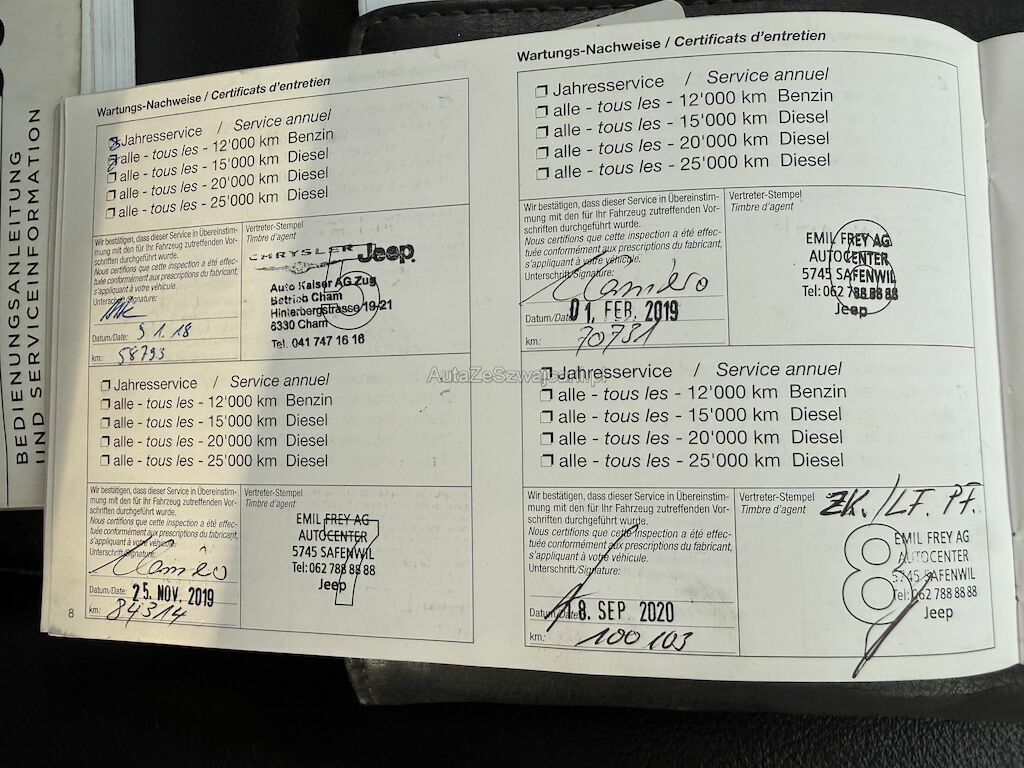 BEDIENUNGSANLEITUNG
UND SERVICEINFORMATION
Wartungs-Nachweise / Certificats d'entretien
Jahresservice / Service annuel
alle - tous les - 12'000 km Benzin
alle - tous les - 15'000 km Diesel
alle - tous les - 20'000 km Diesel
alle - tous les - 25'000 km Diesel
Wir bestätigen, dass dieser Service in Übereinstim-
mung mit den für Ihr Fahrzeug zutreffenden Vor-
schriften durchgeführt wurde.
Nous certifions que cette inspection a été effec-
tuée conformément aux prescriptions du fabricant,
s'appliquant à votre véhicule.
Unterschrift/Signature:
Datum/Date: 9.1.18
km: 58793
Vertreter-Stempel
Timbre d'agent
CHRYSLER Jeep
5
Auto Kaiser AG Zug
Betrieb Cham
Hinterbergstrasse 19-21
6330 Cham
Tel. 041 747 16 16
Jahresservice / Service annuel
alle - tous les - 12'000 km Benzin
alle - tous les - 15'000 km Diesel
alle - tous les - 20'000 km Diesel
alle - tous les - 25'000 km Diesel
Wir bestätigen, dass dieser Service in Übereinstim-
mung mit den für Ihr Fahrzeug zutreffenden Vor-
schriften durchgeführt wurde.
Nous certifions que cette inspection a été effec-
tuée conformément aux prescriptions du fabricant,
s'appliquant à votre véhicule.
Unterschrift/Signature:
Datum/Date: 25. NOV. 2019
km: 84314
Vertreter-Stempel
Timbre d'agent
7
EMIL FREY AG
AUTOCENTER
5745 SAFENWIL
Tel: 062 788 88 88
Jeep
8
Wartungs-Nachweise / Certificats d'entretien
Jahresservice / Service annuel
alle - tous les - 12'000 km Benzin
alle - tous les - 15'000 km Diesel
alle - tous les - 20'000 km Diesel
alle - tous les - 25'000 km Diesel
Wir bestätigen, dass dieser Service in Übereinstim-
mung mit den für Ihr Fahrzeug zutreffenden Vor-
schriften durchgeführt wurde.
Nous certifions que cette inspection a été effec-
tuée conformément aux prescriptions du fabricant,
s'appliquant à votre véhicule.
Unterschrift/Signature:
Datum/Date: 01. FEB. 2019
km: 70731
Vertreter-Stempel
Timbre d'agent
EMIL FREY AG
AUTOCENTER
5745 SAFENWIL
Tel: 062 788 88 88
Jeep
AutaZeSzwajcarii.pl
Jahresservice / Service annuel
alle - tous les - 12'000 km Benzin
alle - tous les - 15'000 km Diesel
alle - tous les - 20'000 km Diesel
alle - tous les - 25'000 km Diesel
Wir bestätigen, dass dieser Service in Übereinstim-
mung mit den für Ihr Fahrzeug zutreffenden Vor-
schriften durchgeführt wurde.
Nous certifions que cette inspection a été effec-
tuée conformément aux prescriptions du fabricant,
s'appliquant à votre véhicule.
Unterschrift/Signature:
Datum/Date: 8. SEP. 2020
km: 100 103
Vertreter-Stempel
Timbre d'agent
ZK./LF. PF.
8
EMIL FREY AG
AUTOCENTER
5745 SAFENWIL
Tel: 062 788 88 88
Jeep